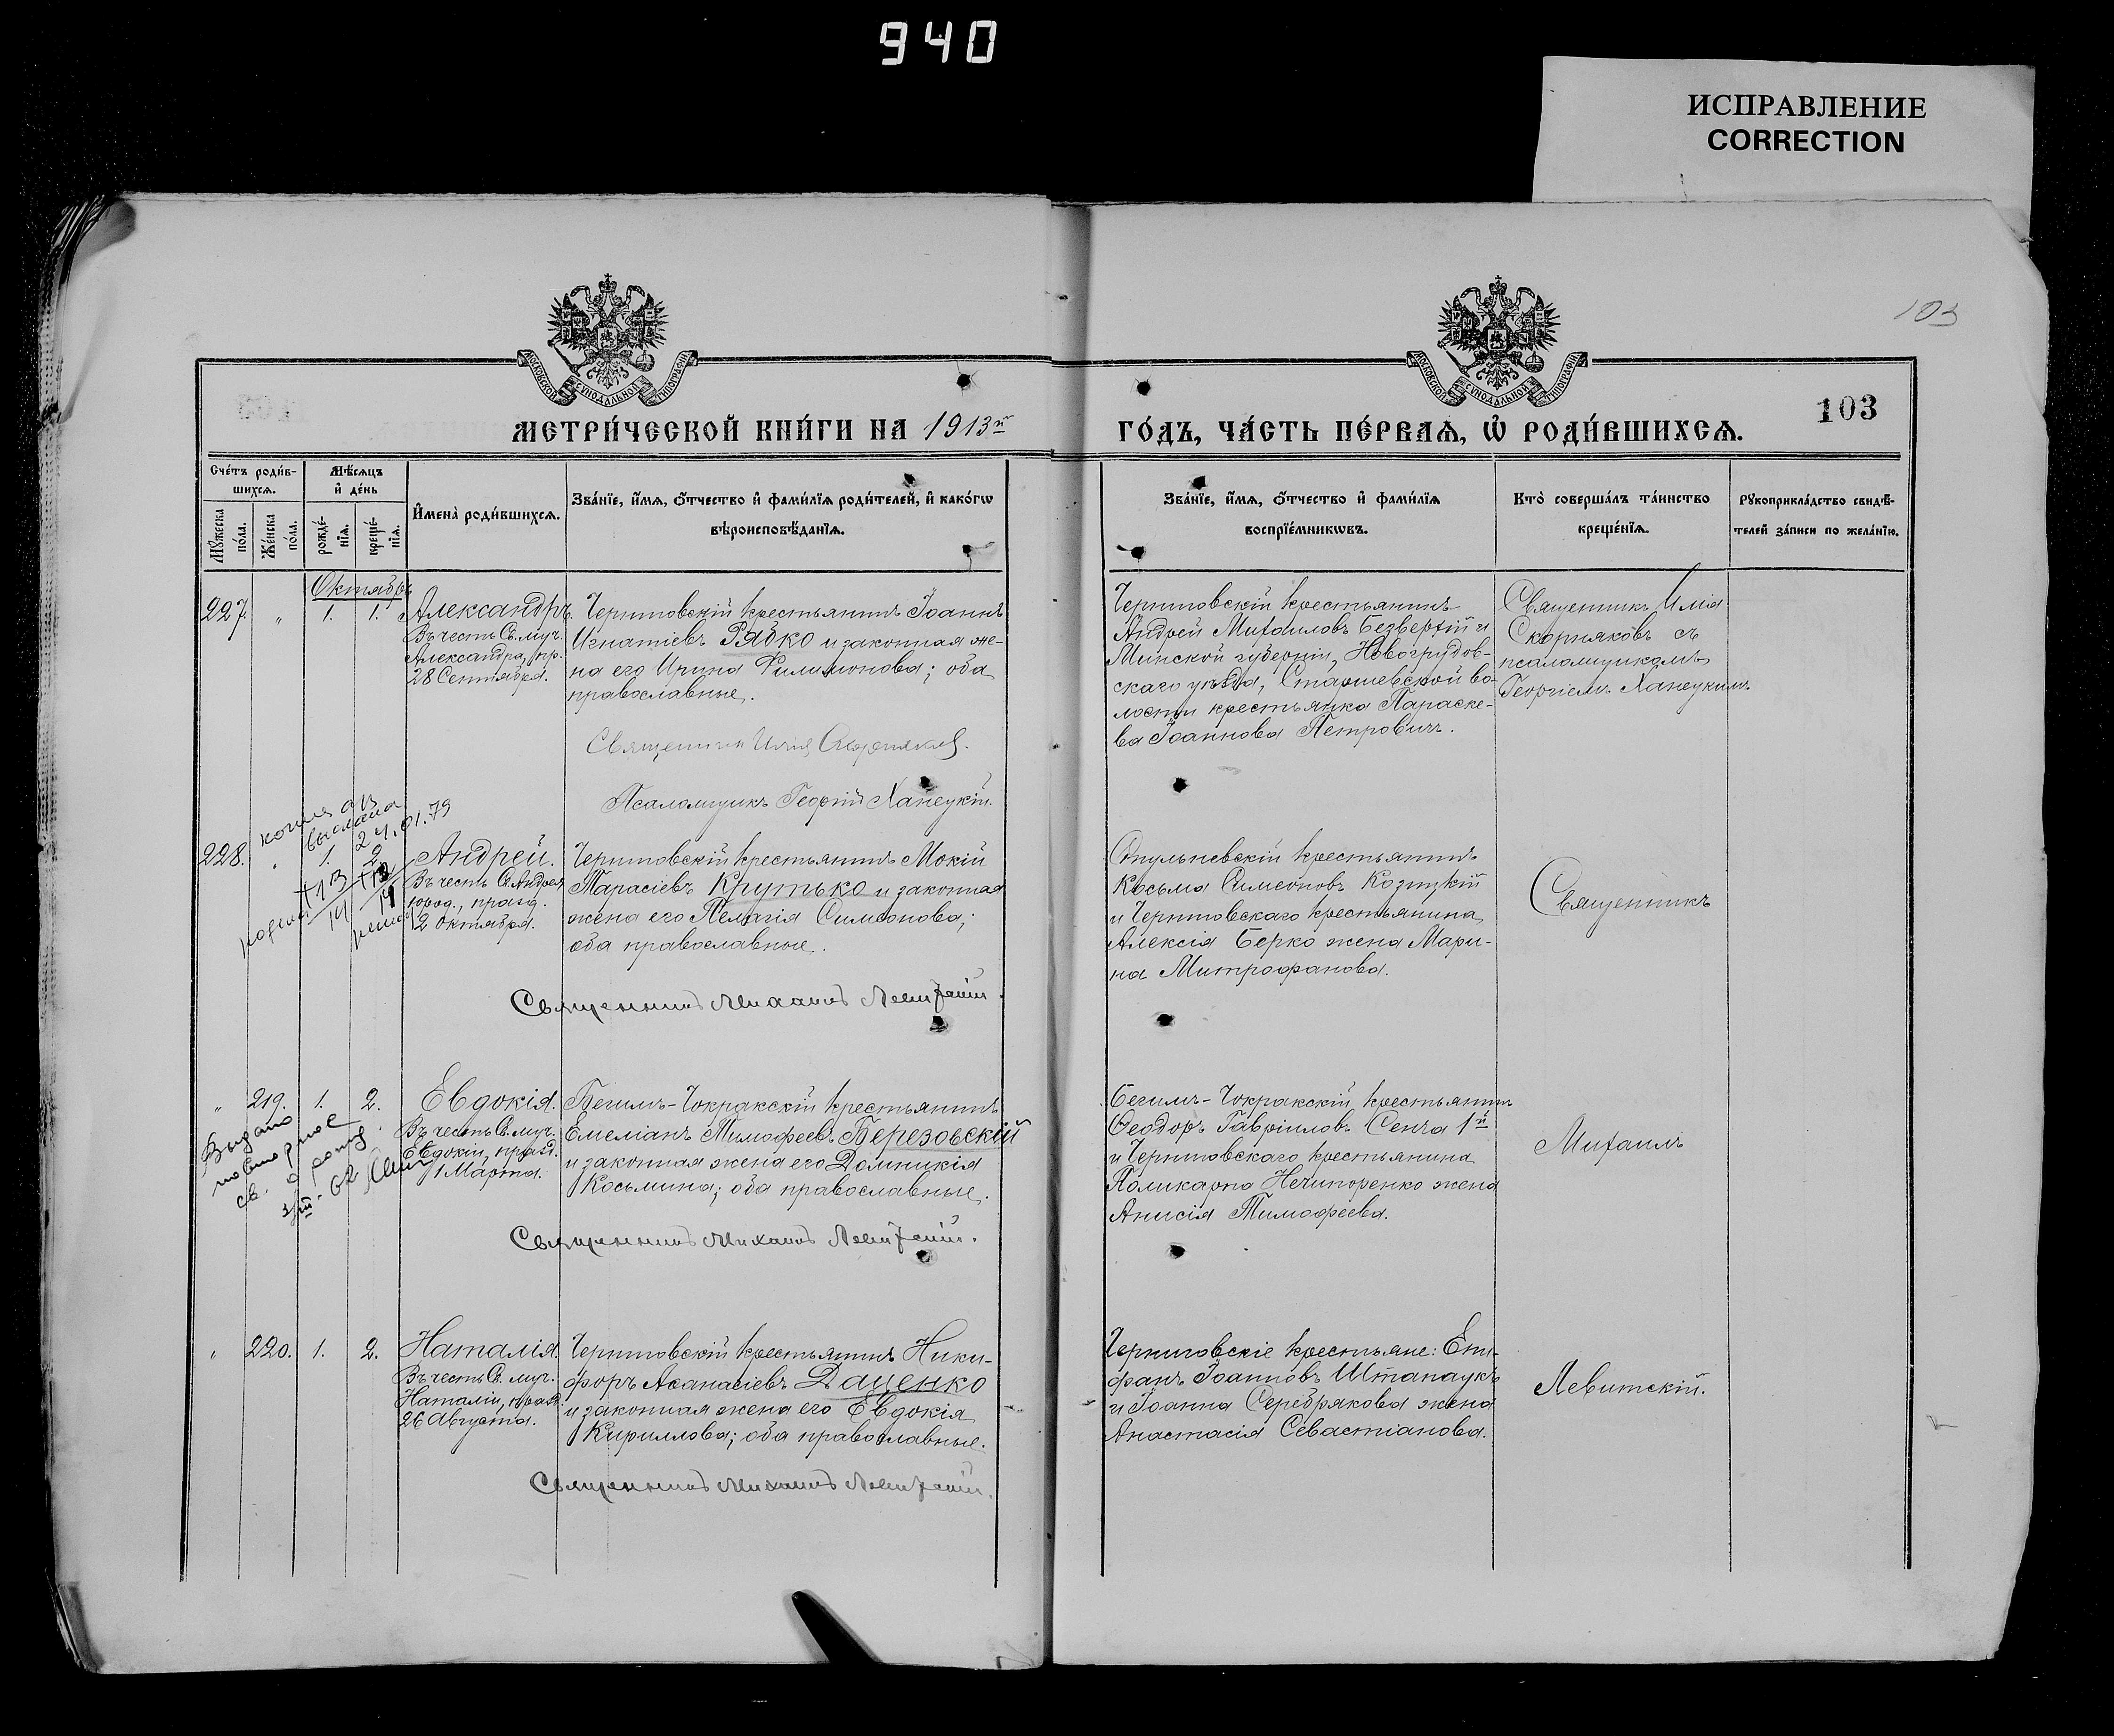 940
ИСПРАВЛЕНИЕ
CORRECTION
103
МОСКОВСКОЙ СѴНОДАЛЬНОЙ ТИПОГРАФІИ
МОСКОВСКОЙ СѴНОДАЛЬНОЙ ТИПОГРАФІИ
103
МЕТРИ́ЧЕСКОЙ КНИ́ГИ НА 1913й
ГО́ДЪ, ЧА́СТЬ ПЕ́РВАѦ, Ѡ҆ РОДИ́ВШИХСѦ.
Сче́тъ роди́в-
шихсѧ.
Мꙋ́жеска
по́ла.
Же́нска
по́ла.
Мѣ́сѧцъ
и҆ де́нь
рожде́-
нїѧ.
креще́-
нїѧ.
И҆мена̀ роди́вшихсѧ.
Зва́нїе, и҆́мѧ, ѻ҆́тчество и҆ фами́лїѧ роди́телей, и҆ како́гѡ
вѣроисповѣ́данїѧ.
Зва́нїе, и҆́мѧ, ѻ҆́тчество и҆ фами́лїѧ
воспрїе́мникѡвъ.
Кто̀ соверша́лъ та́инство
креще́нїѧ.
Рꙋкоприкла́дство свидѣ́-
телей за́писи по жела́нїю.
Октябрь
227. „ 1. 1. Александръ.
Въ честь Св. муч.
Александра, пр.
28 Сентября.
Черниговскій крестьянинъ Іоаннъ
Игнатіевъ Рябко и законная же-
на его Ирина Филимонова; оба
православные.
Священник Илія Скорняков.
Псаломщикъ Георгій Ханецкій.
Черниговскій крестьянинъ
Андрей Михаиловъ Безверхій и
Минской губерніи, Новогрудов-
скаго уѣзда, Старшевской во-
лости крестьянка Параске-
ва Іоаннова Петровичъ.
Священникъ Илія
Скорняковъ съ
псаломщикомъ
Георгіемъ Ханецкимъ.
копия
выслана
24.01.79
228. „ 1. 2. Андрей.
Въ честь Св. Андрея
юрод., празд.
2 Октября.
+13 +13
14
Черниговскій крестьянинъ Мокій
Тарасіевъ Крутько и законная
жена его Пелагія Симеонова;
оба православные.
Священникъ Михаилъ Левитскій.
крестьянинъ
Косьма Симеоновъ Козицкій
и Черниговскаго крестьянина
Алексія Берко жена Мари-
на Митрофанова.
Священникъ
„ 219. 1. 2. Евдокія.
Въ честь Св. муч.
Евдокіи, празд.
1 Марта.
Выдано
повторное
св. о рожд.
62
Бегимъ-Чокракскій крестьянинъ
Емеліанъ Тимофеевъ Березовскій
и законная жена его Домникія
Косьмина; оба православные.
Священникъ Михаилъ Левитскій.
Бегимъ-Чокракскій крестьянинъ
Ѳеодоръ Гавріиловъ Сенча 1й
и Черниговскаго крестьянина
Поликарпа Нечипоренко жена
Анисія Тимофеева.
Михаилъ
„ 220. 1. 2. Наталія.
Въ честь Св. муч.
Наталіи, празд.
26 Августа.
Черниговскій крестьянинъ Ники-
форъ Аѳанасіевъ Даценко
и законная жена его Евдокія
Кириллова; оба православные.
Священникъ Михаилъ Левитскій.
Черниговскіе крестьяне: Епи-
фанъ Іоанновъ Штапаукъ
и Іоанна Серебрякова жена
Анастасія Севастіанова.
Левитскій.